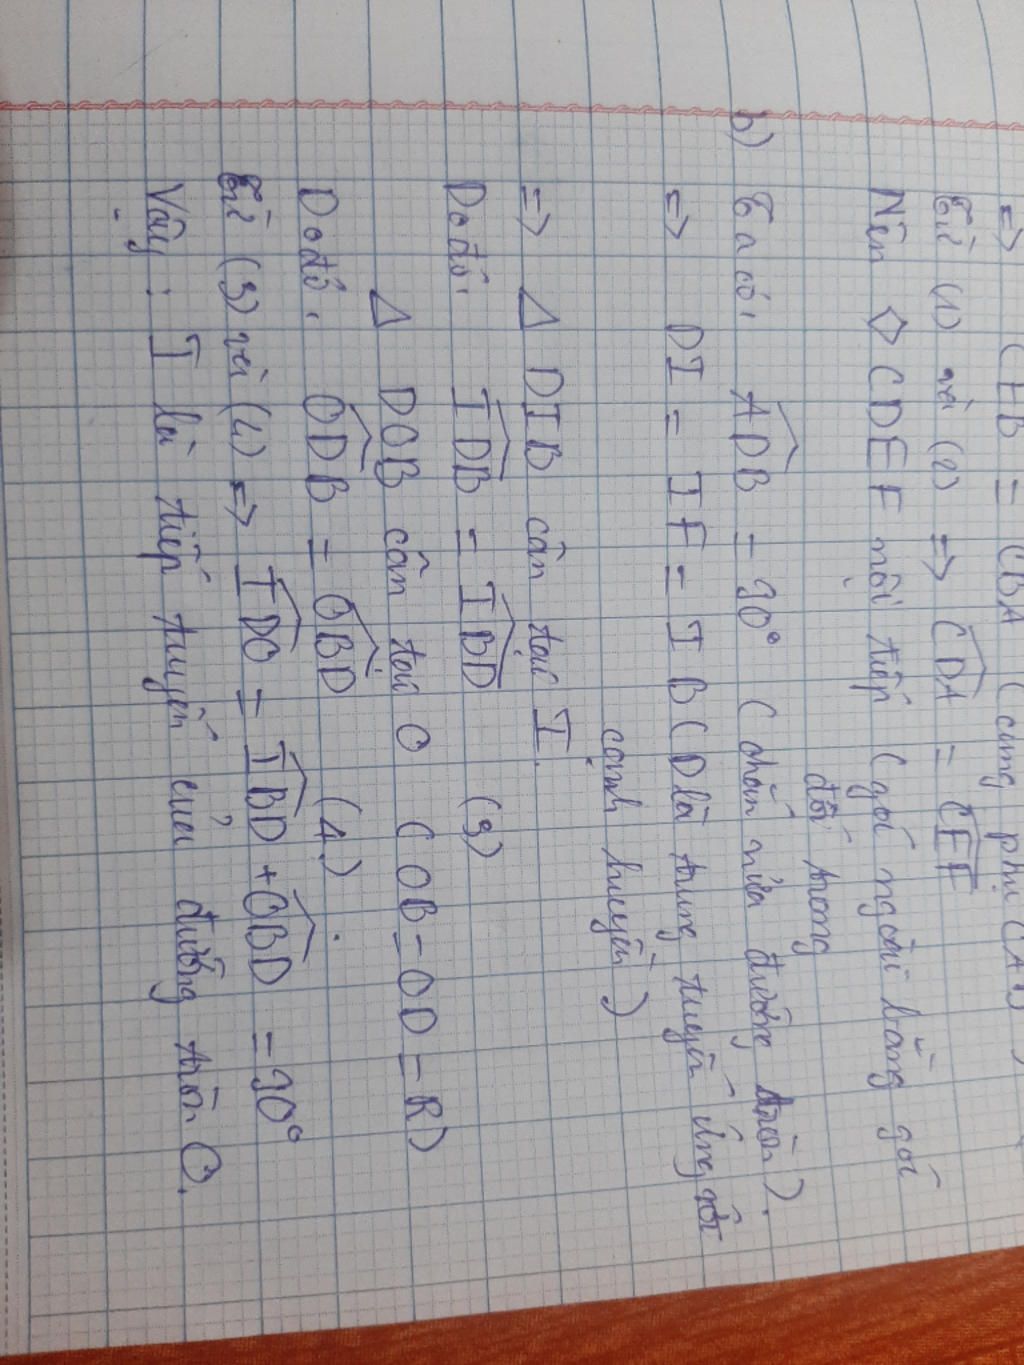 => CEB = CBA (cùng phụ CAB)
Từ (1) và (2) => CDA = CEF
Nên ◇ CDEF nội tiếp (góc ngoài bằng góc
đối trong
b) Ta có, ADB = 90° (chắn nửa đường tròn).
=> DI = IF = IB (D là trung tuyến ứng với
cạnh huyền)
=> Δ DIB cân tại I.
Do đó, IDB = IBD (3)
Δ DOB cân tại O (OB = OD = R)
Do đó, ODB = OBD (4).
Từ (3) và (4) => IDO = IBD + OBD = 90°
Vậy: I là tiếp tuyến của đường tròn O.